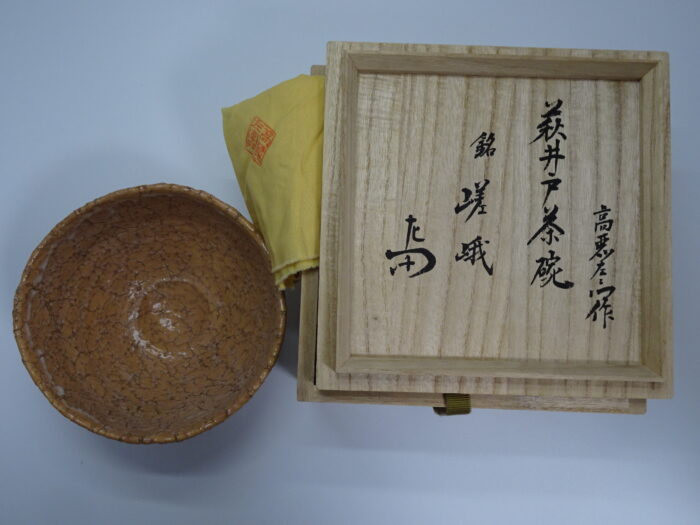 高麗左ヱ門作
萩井戸茶碗
銘 嵯峨